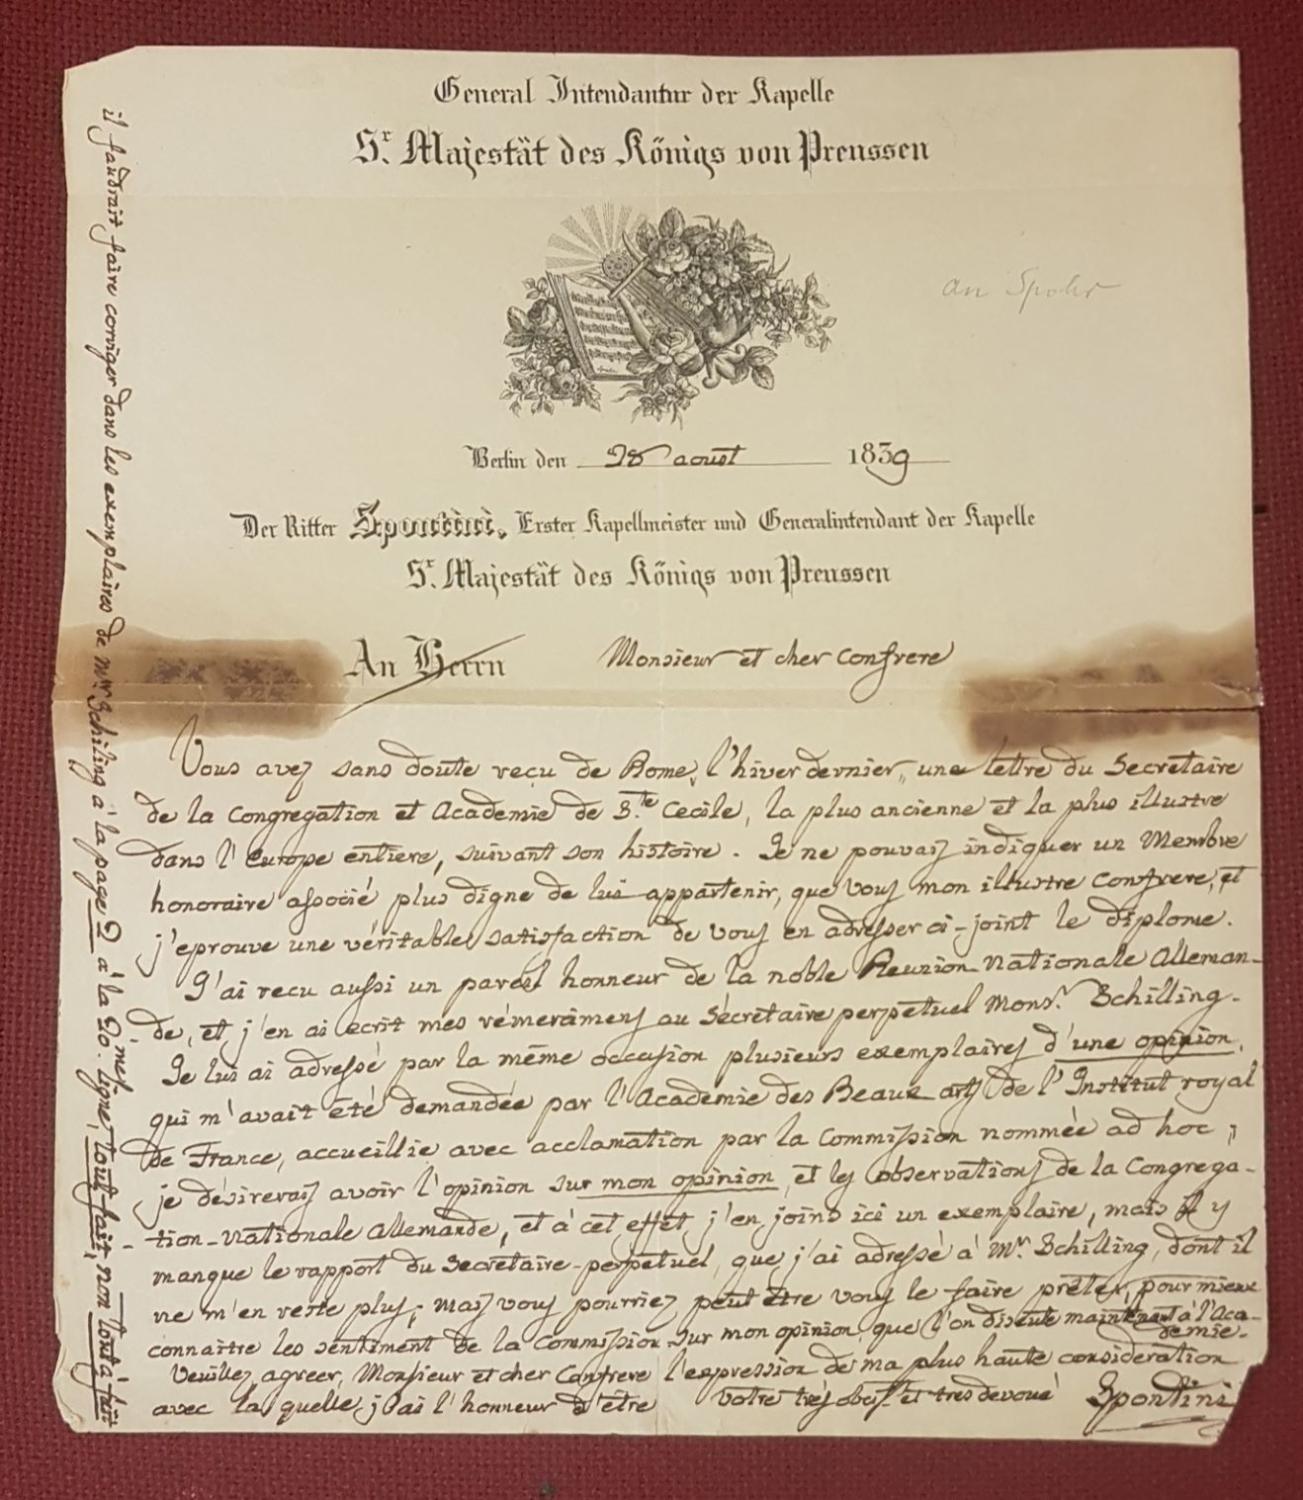 General Intendantur der Kapelle
Sr. Majestät des Königs von Preussen
an Spohr
Berlin den 28 aoust 1839
Der Ritter Spontini, Erster Kapellmeister und Generalintendant der Kapelle
Sr. Majestät des Königs von Preussen
An Herrn Monsieur et cher Confrere
Vous avez sans doute reçu de Rome, l'hiver dernier, une lettre du Secretaire
de la Congregation et Academie de Ste. Cecile, la plus ancienne et la plus illustre
dans l'Europe entiere, suivant son histoire. Je ne pouvais indiquer un Membre
honoraire associé plus digne de lui appartenir, que vous mon illustre Confrere, et
j'eprouve une véritable satisfaction de vous en adresser ci-joint le diplome.
J'ai recu aussi un pareil honneur de la noble Reunion Nationale Alleman-
de, et j'en ai ecrit mes rémercimens au Sécrétaire perpetuel Monsr. Schilling.
Je lui ai adressé par la même occasion plusieurs exemplaires d'une opinion,
qui m'avait été demandée par l'Academie des Beaux arts de l'Institut royal
de France, accueillie avec acclamation par la Commission nommée ad hoc;
je désirerais avoir l'opinion sur mon opinion, et les observations de la Congrega-
tion-Nationale Allemande, et à cet effet j'en joins ici un exemplaire, mais il y
manque le rapport du Secretaire-perpetuel, que j'ai adressé à Mr. Schilling, dont il
ne m'en reste plus; mais vous pourriez peut être vous le faire prêter, pour mieux
connaitre les sentiment de la Commission sur mon opinion, que l'on discute maintenant à l'Aca-
demie.
Veuillez agreer, Monsieur et cher Confrere l'expression de ma plus haute consideration
avec la quelle j'ai l'honneur d'être votre très obéist. et tres devoué Spontini
il faudrait faire corriger dans les exemplaires de Mr. Schiling à la page 2 à la 20.mes ligne, tout fait, non tout à fait